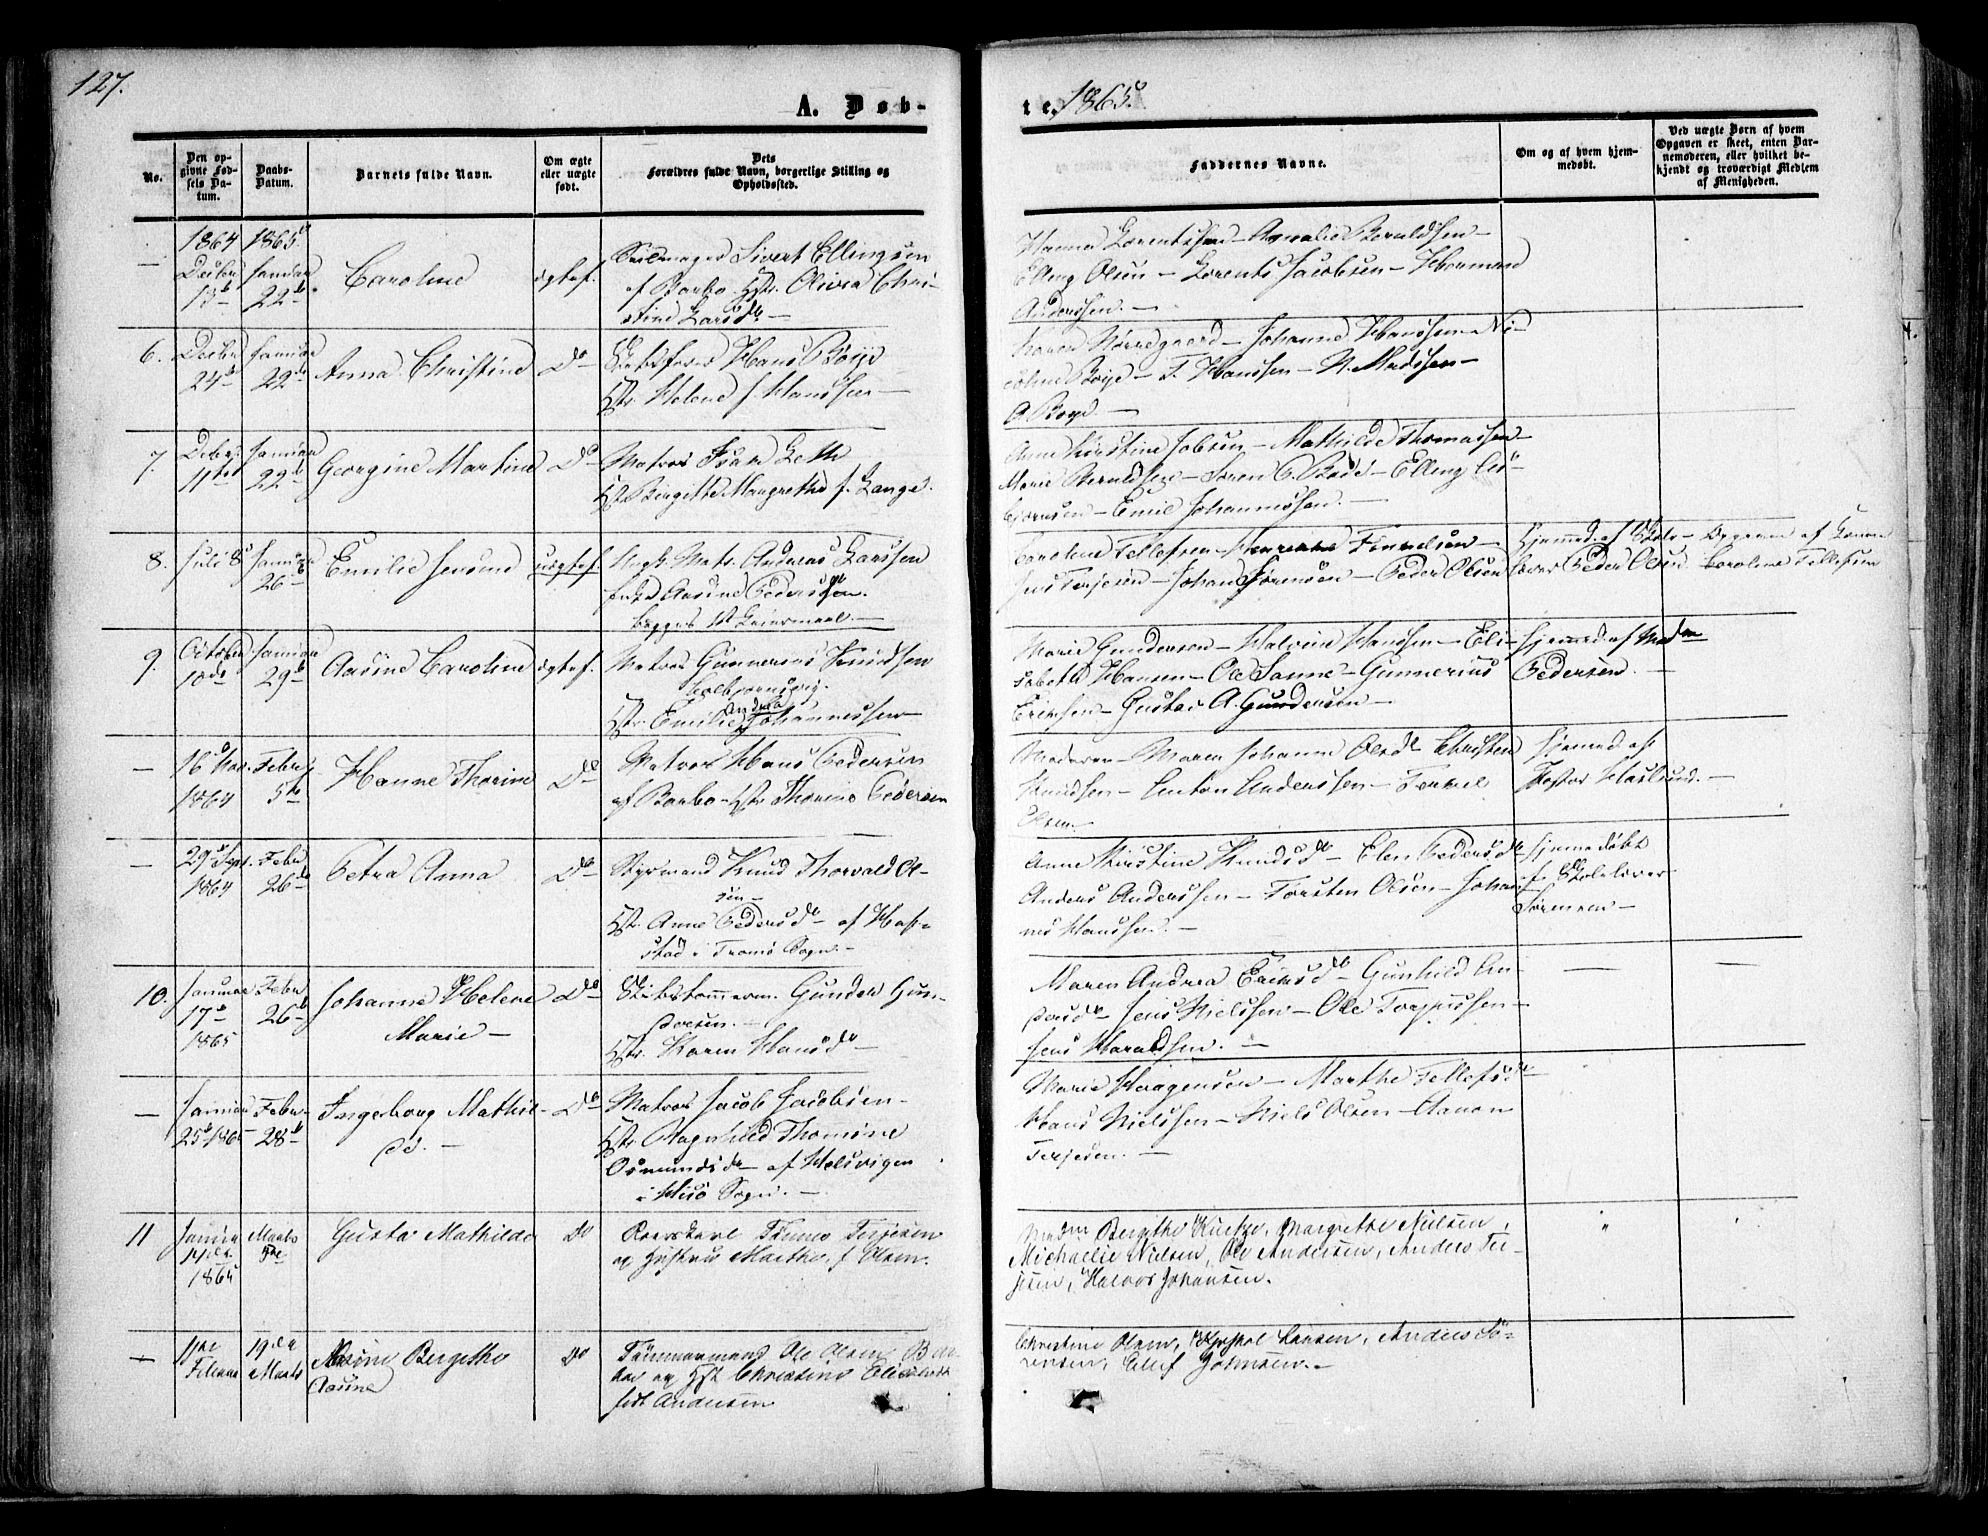 127.
A. Døb-
te. 1865.
No.
Den op-
givne Fød-
sels Da-
tum.
Daabs-
Datum.
Barnets fulde Navn.
Om ægte
eller uægte
født.
Dets
Forældres fulde Navn, borgerlige Stilling og
Opholdssted.
Faddernes Navne.
Om og af hvem hjem-
medøbt.
Ved uægte Børn af hvem
Opgaven er skeet, enten Bar-
nemoderen, eller hvilket be-
kjendt og troværdigt Medlem
af Menigheden.
—
1864
Decbr
13de
1865
Januar
22de
Caroline
ægtef.
Seilmager Sivert Ellingsen
af Barbo Hstr. Olivia Chri-
stine Larsdtr —
Hanna Lorentssen — Amalie Beruldsen —
Elling Olsen — Lorents Jacobsen — Herman
Anderssen. —
6.
Decbr
24de
Januar
22de
Anna Christine
Do
Skibsfører Hans Boye
Hstr. Helene f. Hanssen —
Maren Nørregaard — Johanne Hanssen
Boye — F. Hanssen — N. Madssen —
A. Boye. —
7.
Decbr.
11te
Januar
22de
Georgine Martine
Do
Matros Isak Leth
Hstr Birgitte Margrethe f. Lange.
Anne Kirstine Jobsen — Mathilde Thomassen
Marie Beruldsen — Søren C. Bøe — Elling Es-
bjørnsen — Emil Johannessen. —
8.
Juli 8de
Januar
26de
Emilie Jensine
uægtef.
Ungk. Matr. Andreas Larssen
Pike Aasine Pedersdtr.
begges 1st Leiermaal. —
Caroline Tellefsen — Finnelsen —
Jens Terjesen — Johan Sørensen — Peder Olsen
Hjemmed. af Skole-
lærer Peder Olsen
Opgaven af Konen
Caroline Tellefsen
9.
October
10de
Januar
29de
Aasine Caroline
ægtef.
Matros Gunnerius Knudsen
Kolbjørnsvig.
Hstr. Emilie Andrea Johannessen —
Marie Gundersen — Halvine Hanssen — Eli-
sabeth Hansen — Ole Sanne — Gunnerius
Eriksen — Gustav A. Gundersen —
Hjemmed. af Madm
Pedersen. —
—
16de Nov.
1864
Febr.
5te
Hanne Thorine
Do
Matros Hans Pedersen
af Barbo — Hstr Thorine Pedersen
Moderen — Maren Johanne Olsdtr — Christen
Knudsen — Anton Anderssen — Terkel
Olsen. —
Hjemmed. af
Pastor Haslund. —
—
29de Sept.
1864
Febr
26de
Petra Anna
Do
Styrmand Knud Thorvald Ol-
sen —
Hstr. Anne Pedersdtr — af Hasse-
stad i Tromø Sogn. —
Anne Kirstine Knudsdtr — Elen Pedersdtr —
Anders Anderssen — Torsten Olsen — Johan-
nes Hanssen. —
Hjemmedøbt
af Skolelærer
Sørensen —
10.
Januar
17de
1865
Febr
26de
Johanne Helene
Marie —
Do
Skibstømmerm. Gunder Gun-
dersen. —
Hstr. Karen Hansdtr —
Maren Andrea Eriksdtr — Gunhild An-
dersdtr — Jens Nielssen — Ole Torjussen —
Jens Haraldsen. —
—
—
—
Januar
25de 1865
Febr.
28de
Ingeborg Mathil-
de. —
Do
Matros Jacob Jacobsen —
Hstr Ragnhild Thomine
Osmundsdtr — af Helsvigen
i Hisø Sogn. —
Marie Haagensen — Marthe Tellefsdtr
Hans Nielssen — Niels Olsen — Aanon
Terjesen. —
11
Januar
14de
1865
Marts
5te
Gusta Mathilde
Do
Roerskarl Tønnes Terjesen
og Hustru Marthe f. Olsen.
Madm Bergithe Kuetze, Margrethe Nielsen,
Michaelie Nielsen, Ole Andersen, Anders Ter-
jesen, Halvor Johansen.
"
"
—
11te
Februar
19de
Marts
Maxine Bergithe
Aasine
Do
Tømmermand Ole Olsen Bar-
bo og Hst Christine Elisabeth
født Andersen
Christine Olsen, Larsen, Anders Sø-
rensen, Ellef Johnsen. —